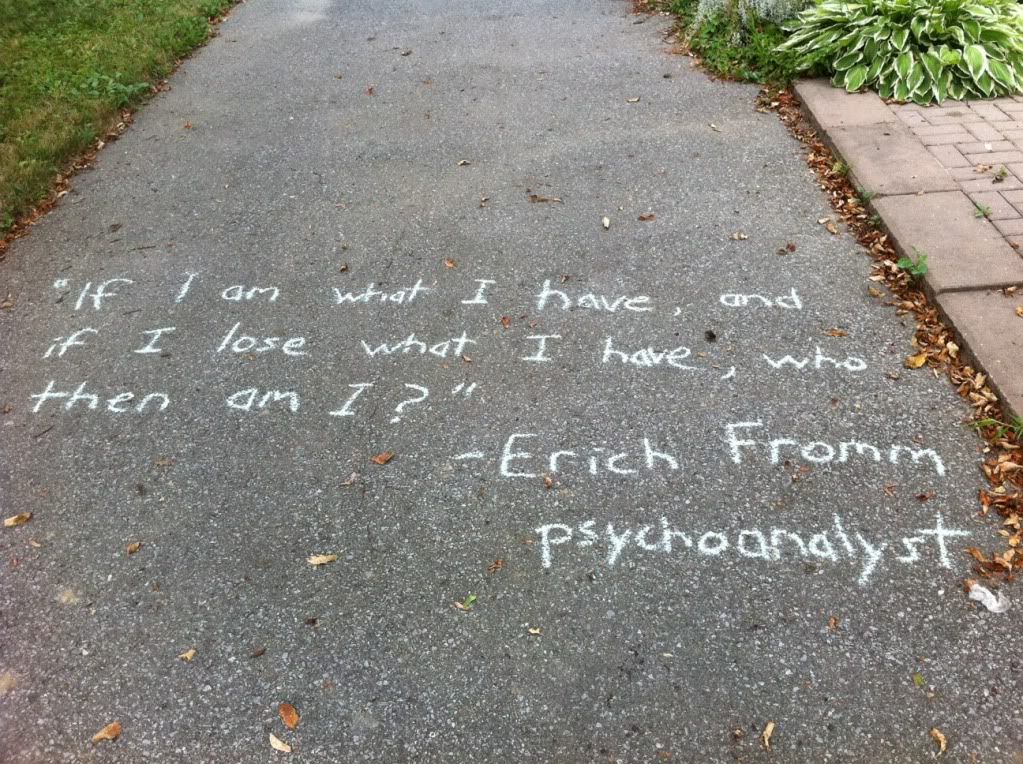 "If I am what I have, and
if I lose what I have, who
then am I?"
-Erich Fromm
psychoanalyst